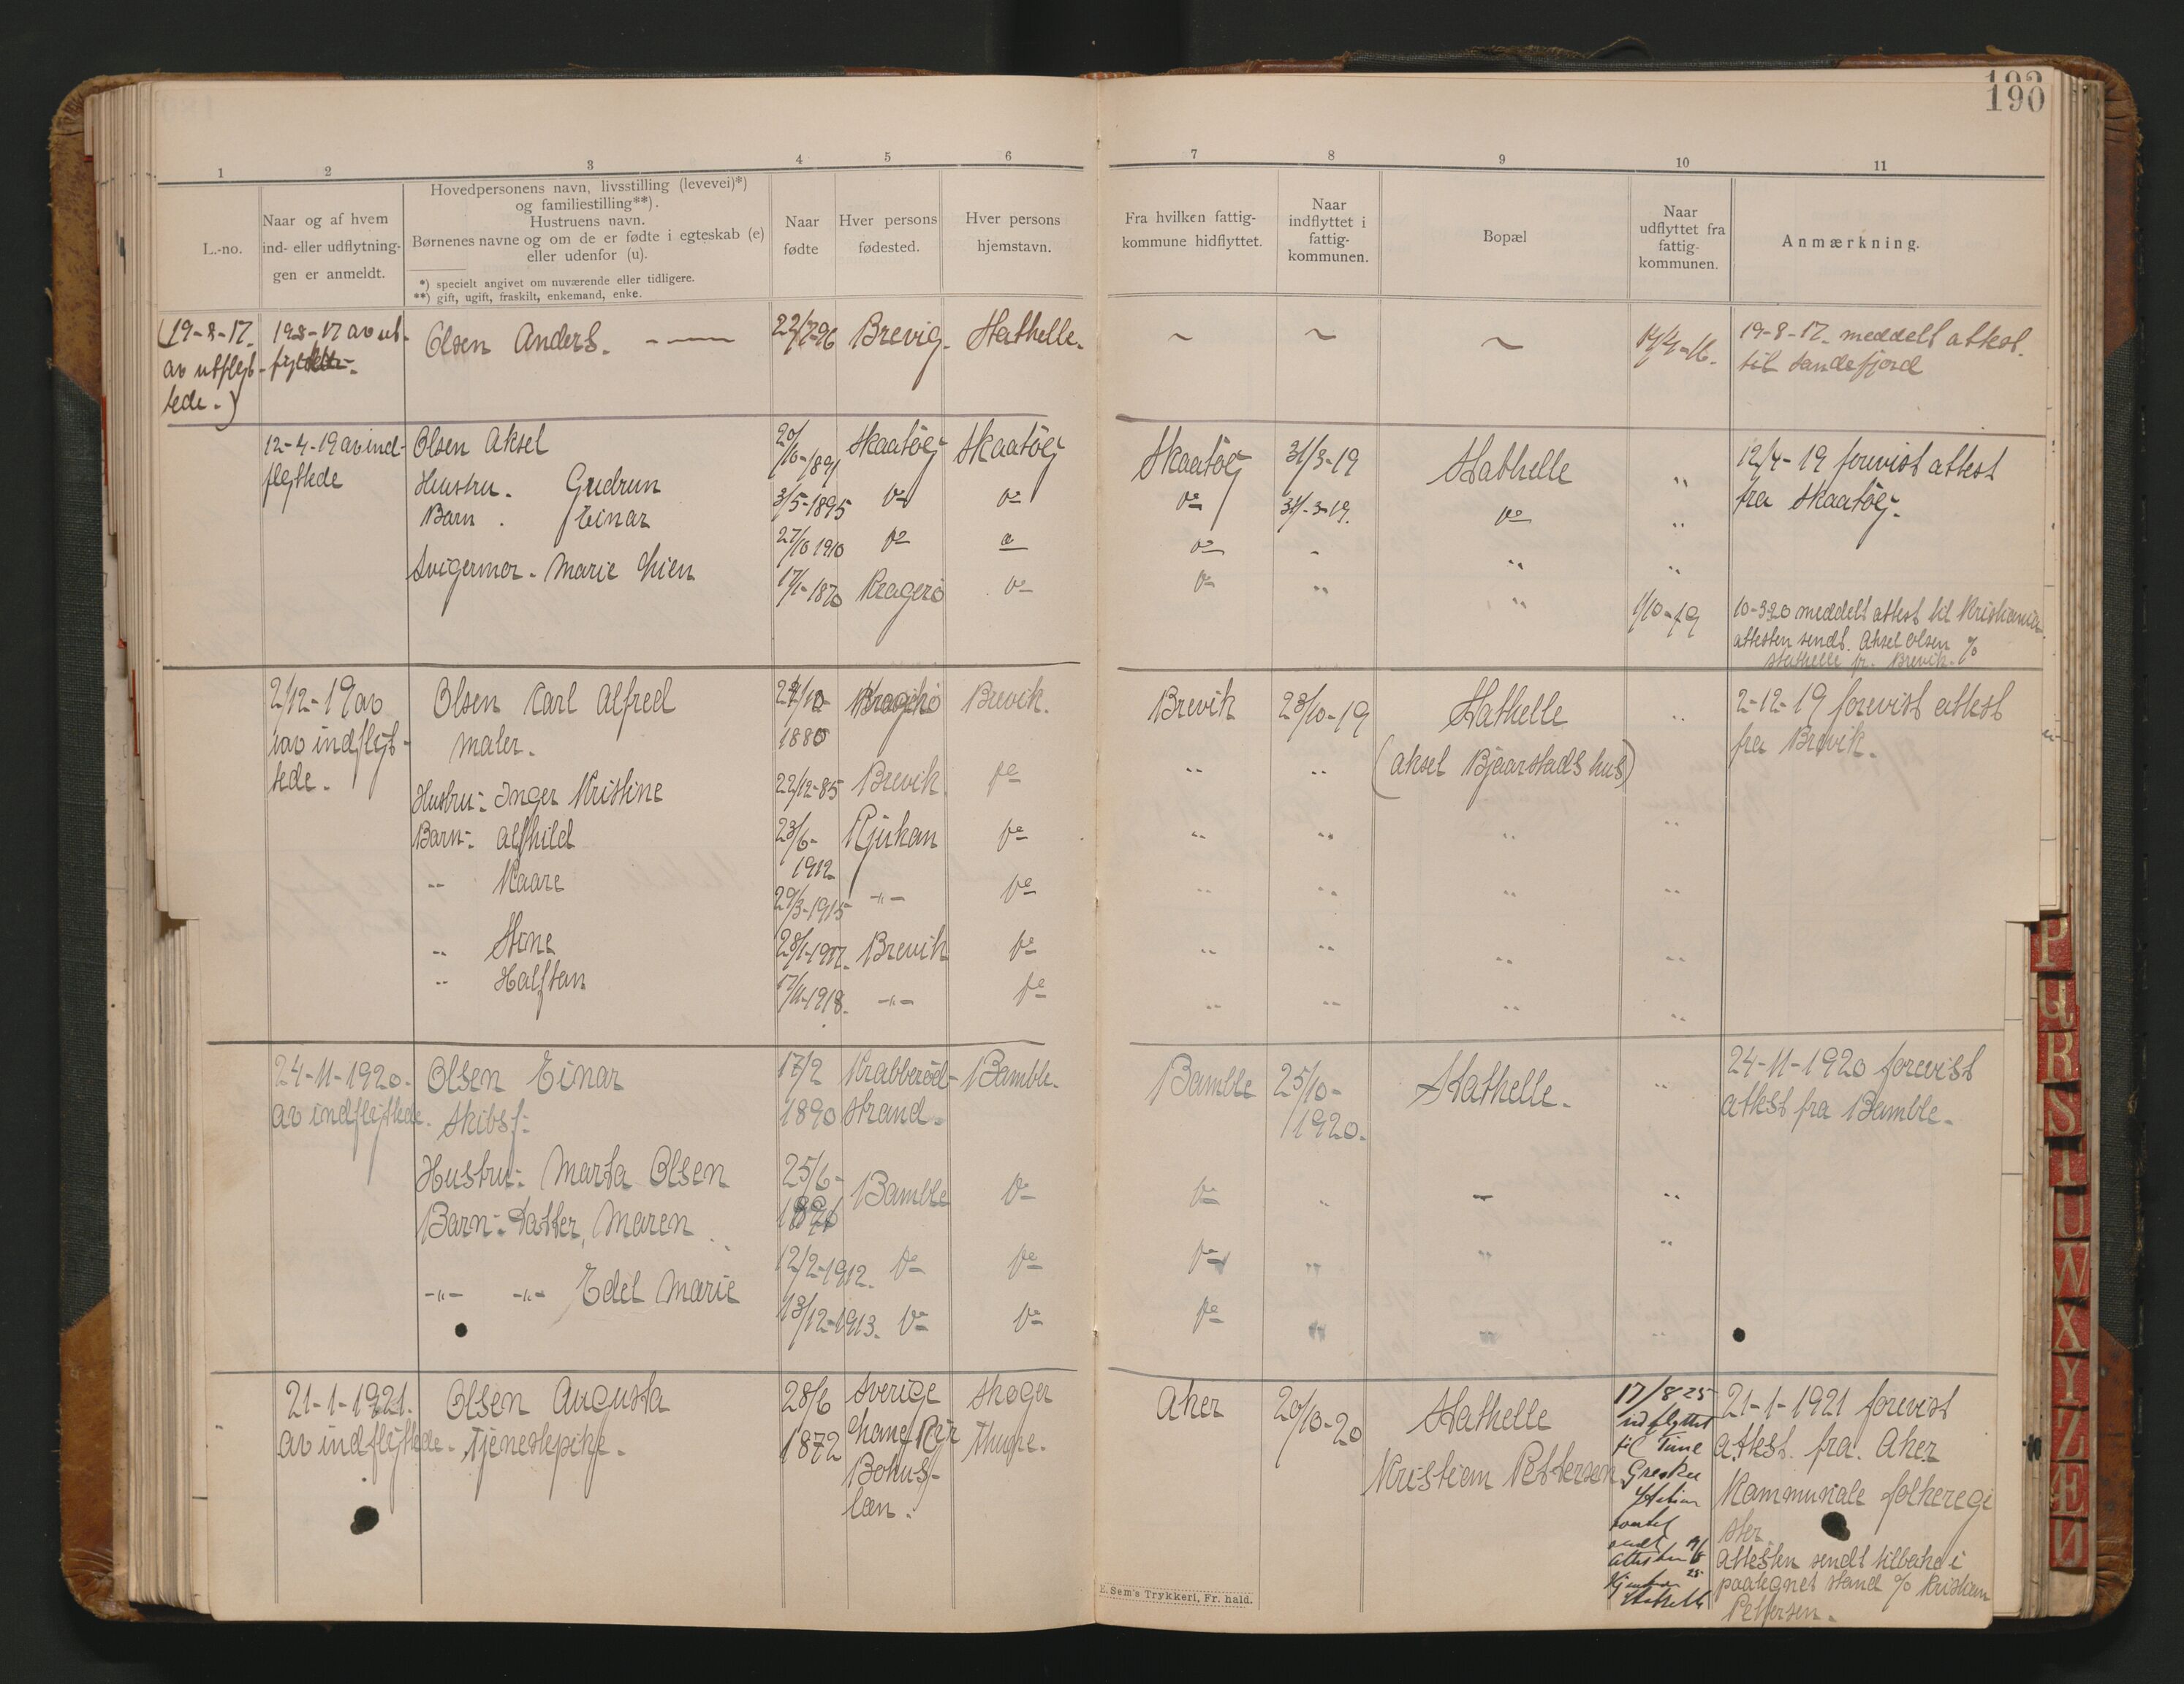 190
1 2 3 4 5 6 7 8 9 10 11
L.-no.
Naar og af hvem
ind- eller udflytning-
gen er anmeldt.
Hovedpersonens navn, livsstilling (levevei)*)
og familiestilling**).
Hustruens navn.
Børnenes navne og om de er fødte i egteskab (e)
eller udenfor (u).
*) specielt angivet om nuværende eller tidligere.
**) gift, ugift, fraskilt, enkemand, enke.
Naar
fødte
Hver persons
fødested.
Hver persons
hjemstavn.
Fra hvilken fattig-
kommune hidflyttet.
Naar
indflyttet i
fattig-
kommunen.
Bopæl
Naar
udflyttet fra
fattig-
kommunen.
Anmærkning.
(19-8-17.
av utflyt-
tede.)
19-8-17 av ut-
Olsen Anders. Brevig. Stathelle.
19-8-17. meddelt attest.
til Sandefjord
12-4-19 av ind-
flyttede
Olsen Aksel 20/10-1891 Skaatöy Skaatöy Skaatöy 31/3-19 Stathelle "
Hustru. Gudrun 3/5-1895 do do do 31/-3-19. do "
Barn. Einar 27/10 1910 do do do - " "
Svigermor. Marie Thien 17/1-1870 Kragerö do do " "
12/4-19 forevist attest
fra Skaatöy.
1/10-19
10-3-20 meddelt attest til Kristiania.
attesten sendt. Aksel Olsen %
Stathelle pr. Brevik.
2/12-19 av
av indflyt-
tede.
Olsen Carl Alfred
maler.
1880
Brevik.
Brevik 23/10-19 Stathelle "
(Aksel Bjaarstads hus)
2-12-19 forevist attest
fra Brevik.
Hustru:- Inger Kristine 22/12-85 Brevik do " "
Barn:- Alfhild 23/6-1912 Rjukan do " " " "
" Kaare 29/3-1915 -"- do " " " "
" Stine 28/1-1917. Brevik do " " " "
" Halftan 17/11-1918. -"- do " " " "
24-11-1920.
av indflyttede.
Olsen Einar
Skibsf:-
17/2
1890
Krabberöd-
strand.
Bamble.
Bamble 25/10-
1920.
Stathelle. "
24-11-1920 forevist
attest fra Bamble.
Hustru:- Marta Olsen 25/6- Bamble do do " - "
Barn:- Datter, Maren 12/2-1912. do do do " " "
-"- -"- Edel Marie 13/12-1913. do do do " " "
21-1-1921.
av indflyttede.
Olsen Augusta
Tjenestepike.
28/6
1872
Sverige
Bohus-
län.
Skoger
Aker 20/10-20 Stathelle
Kristian Pettersen
17/8 25
udflyttet
til
attesten
Stathelle
21-1-1921 forevist
attest. fra. Aker
Kommunale folkeregi
ster
attesten sendt tilbake i
paategnet stand % Kristian
Pettersen.
E. Sem's Trykkeri, Fr. hald.
P
Q
R
S
T
U
W
X
Y
Z
Æ